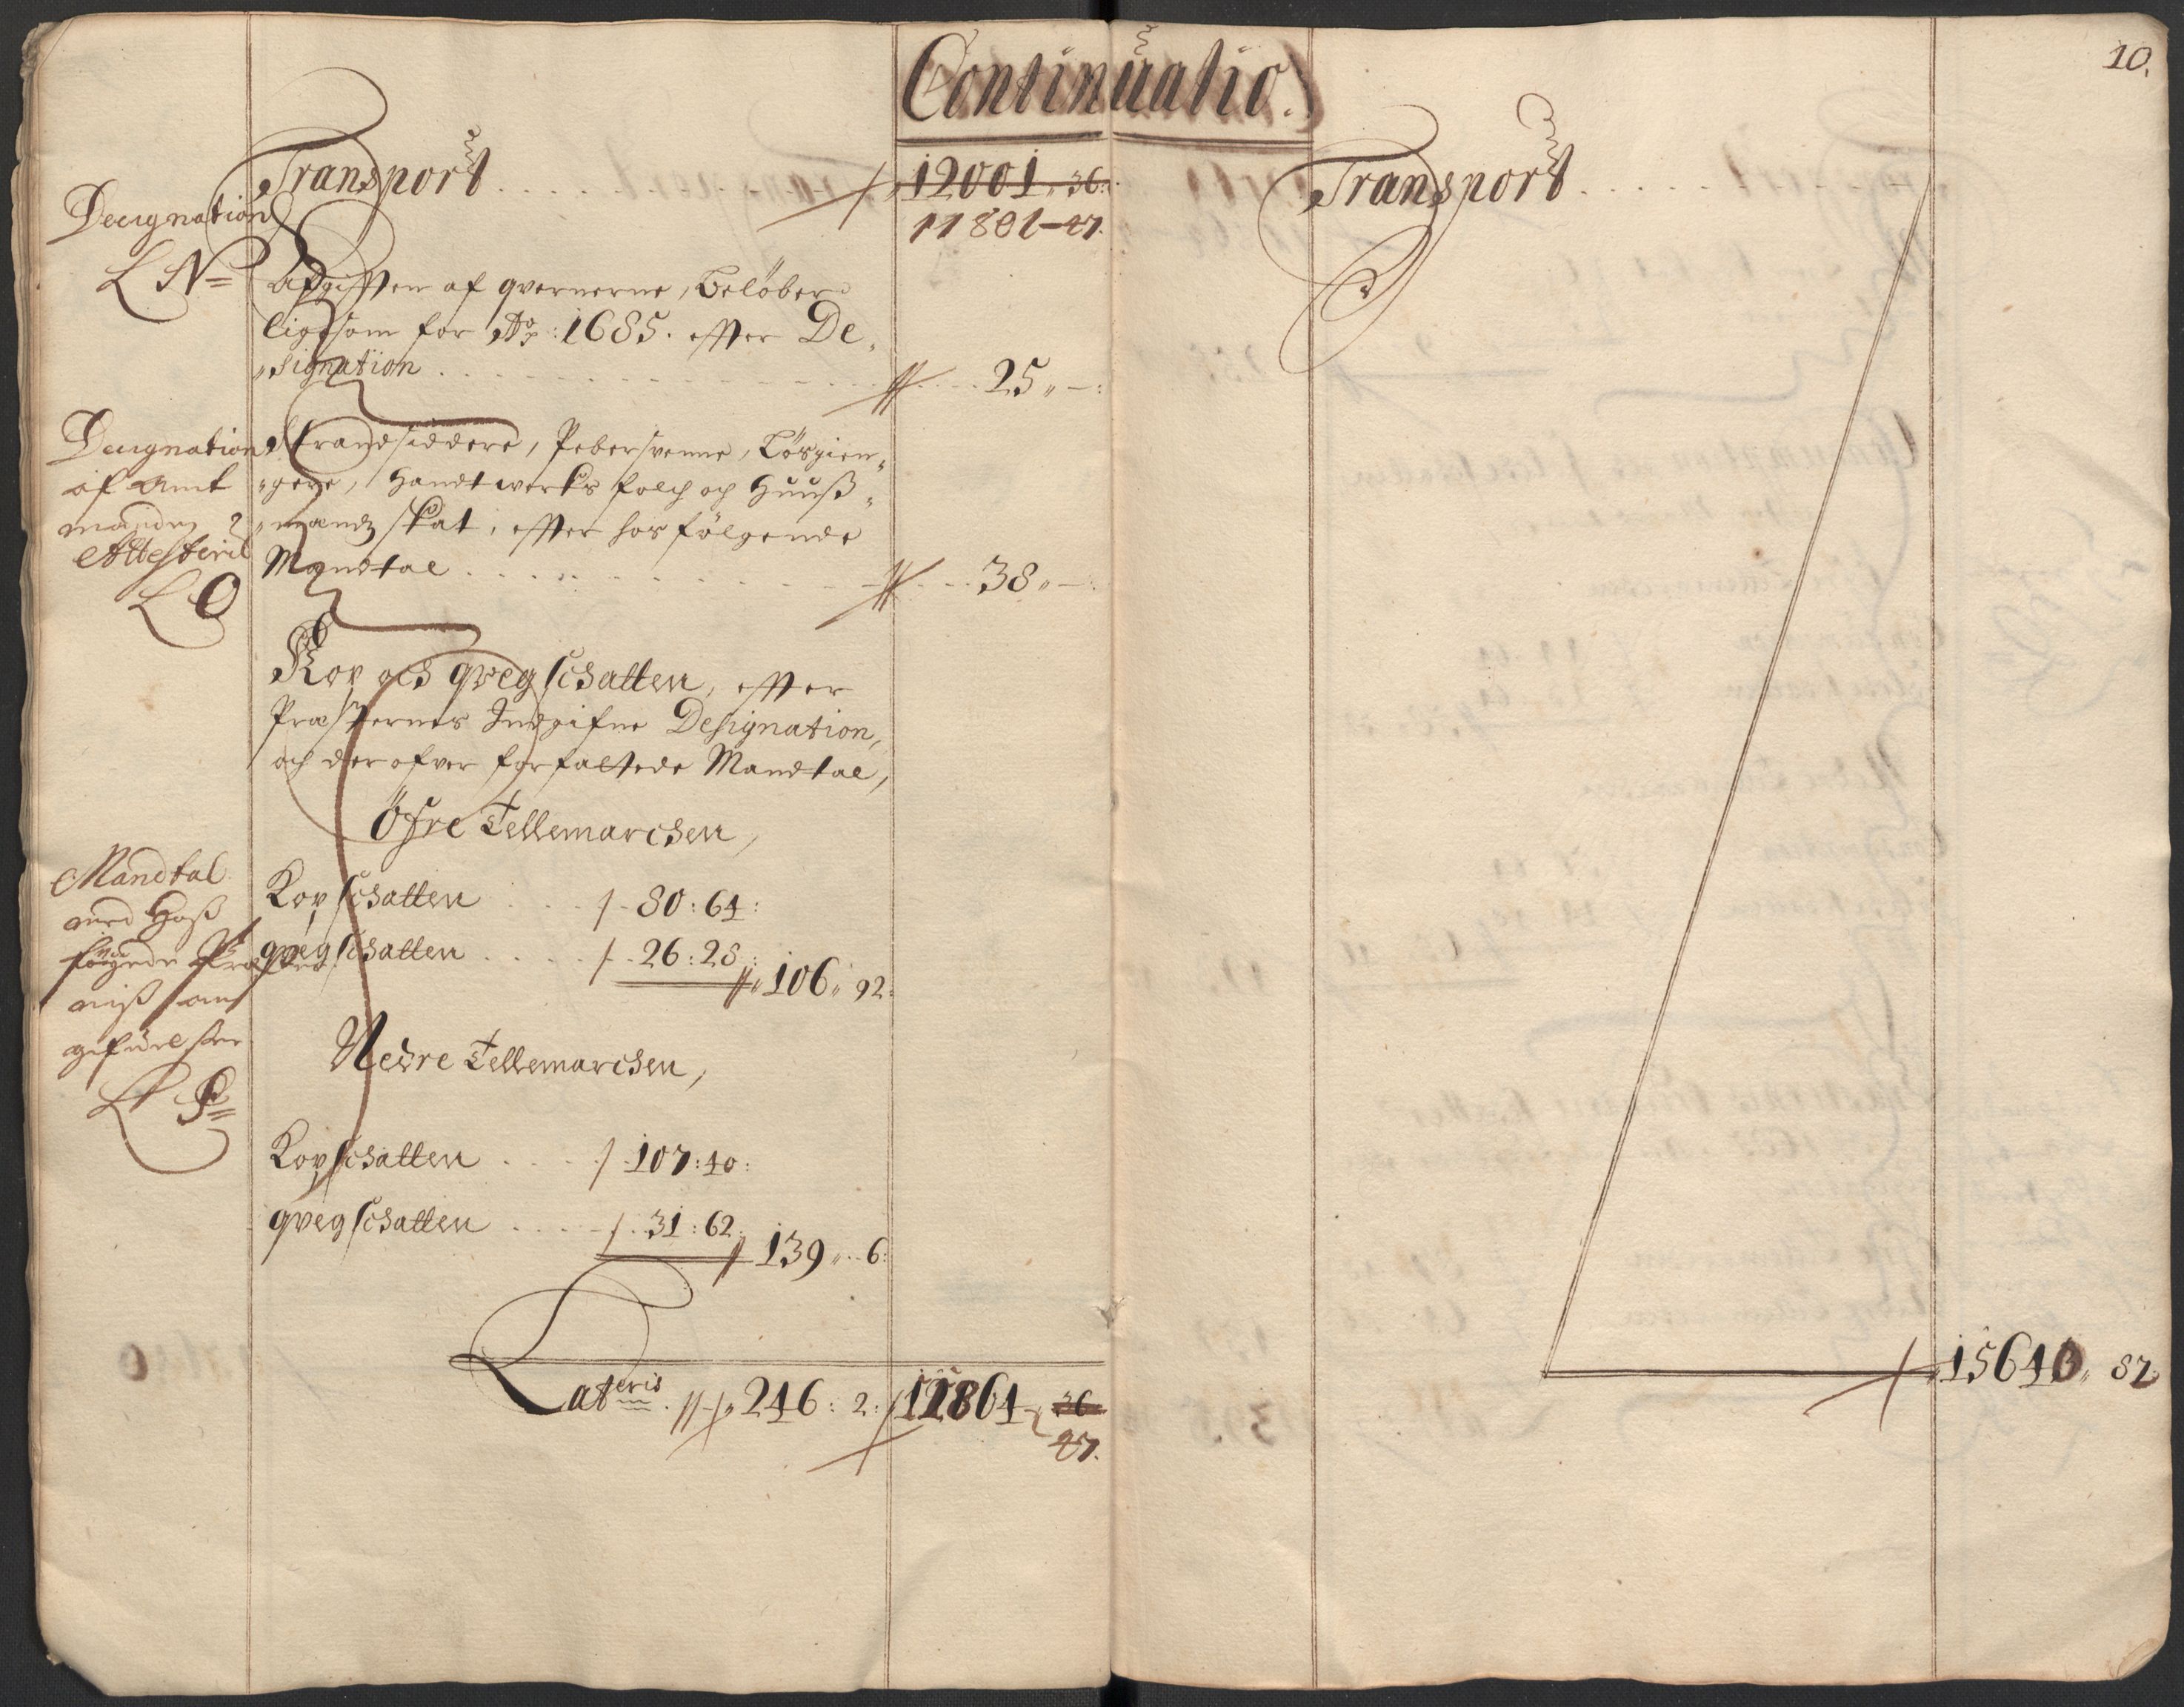 Continuatio.
10.
Transport . . . . . 12001 „ 36:
11801 - 47.
Designation
L N=
Afgifften af qvernerne, Beløber
ligesom for Ao: 1685. effter De„
„signation . . . . 25 „ —:
Designation
af Amt
manden
Attesteret
L O
Strandsiddere, Pebersvenne, Løsgien„
„gere, Handtwerks folch och Huuß„
„mandz skat, effter hosfölgende
Mandtal . . . . 38 „ —:
Kop och qvegschatten, effter
Præsternes Indgifne Designation,
och der ofver forfattede Mandtal,
Öfre Tellemarchen,
Mandtal
med Hoß
fölgende
L P=
Kopschatten . . . . 80 : 64 :
qvegschatten . . . . 26 : 28 :
106 „ 92 :
Nedre Tellemarchen,
Kopschatten . . . . 107 : 40 :
qvegschatten . . . . 31 : 62 :
139 „ 6 :
Lateris . 246 : 2 : 11864 - 36
47.
Transport . . . . .
15640 „ 82